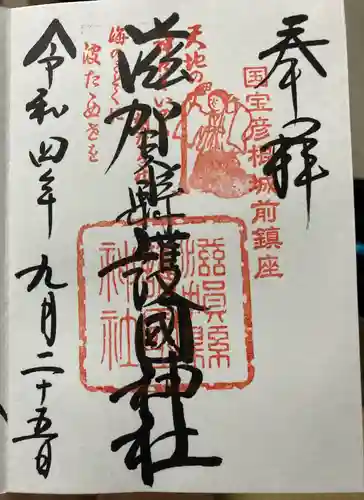 奉拝
国宝彦根城前鎮座
天地の
滋賀縣護國神社
滋賀縣護國神社
波たゝぬ世を
令和四年九月二十五日